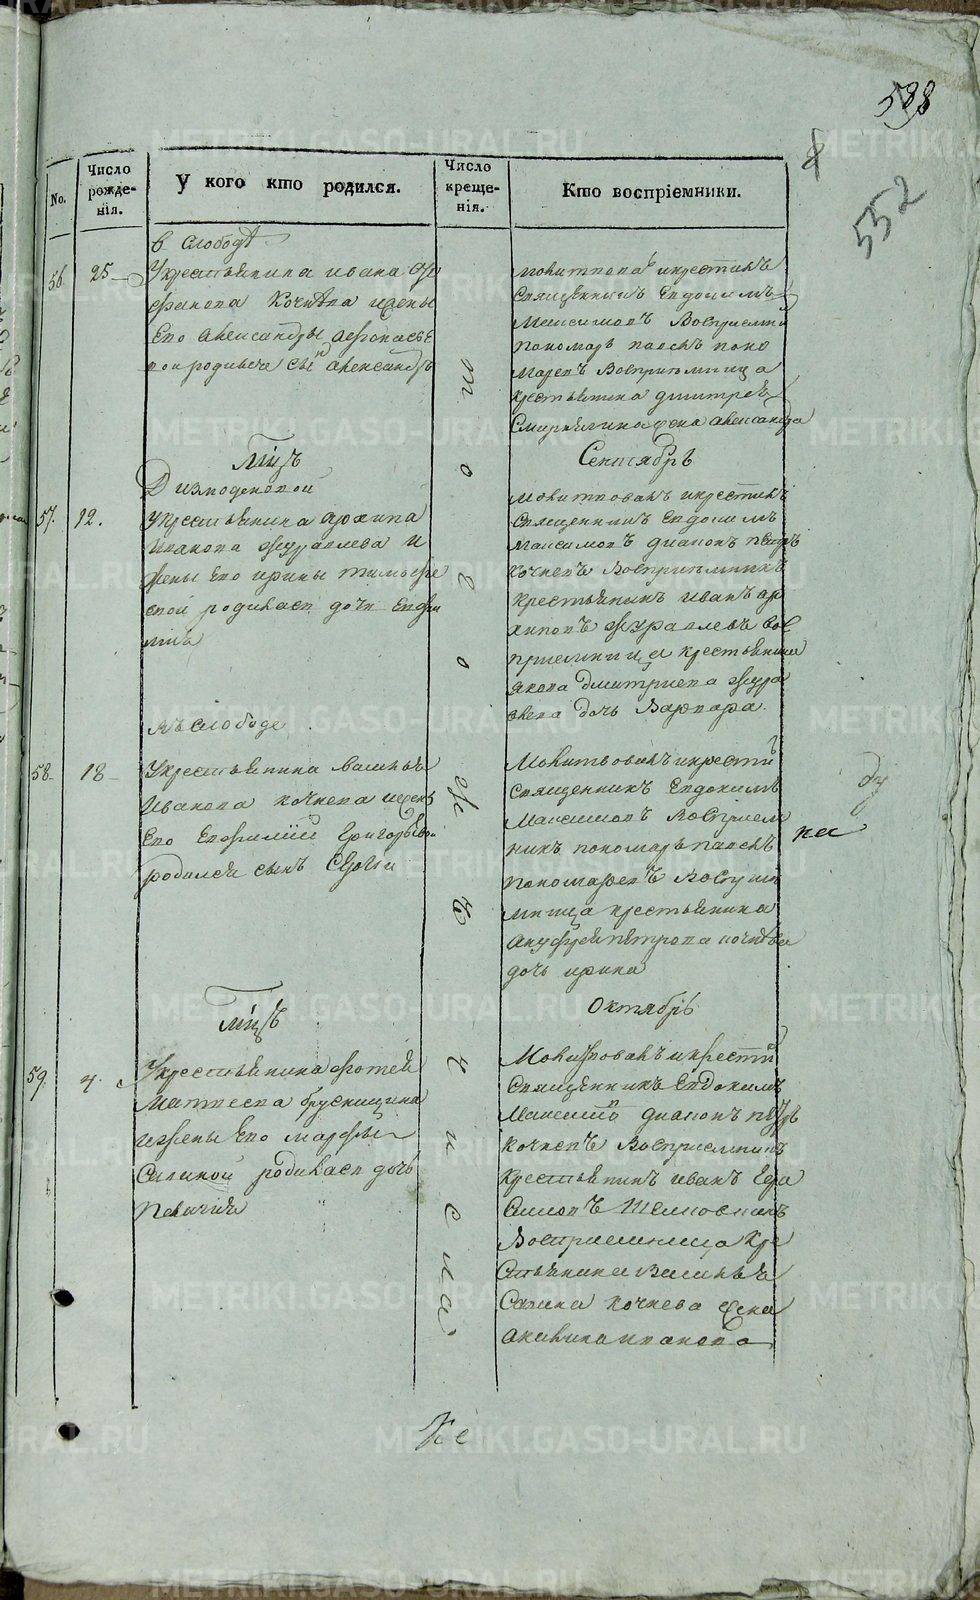 588
552
No.
Число рожде-нія.
У кого кто родился.
Число креще-нія.
Кто воспріемники.
в слободѣ
56 25
Укрестьянина ивана
Кочнева ижены
Его александры
родился сынъ александръ
молитвовалъ икрестилъ
Священникъ Евдокимъ
Максимовъ Восприемни
пономарь павелъ поно
маревъ Восприемница
крестьянина дмитрея
жена александра
Мцъ Сентябрь
Д измоденовой
57. 12.
укрестьянина архипа
иванова журавлева и
жены Его ирины тимофе
евой родилась дочь Евфи
мия
молитвовалъ икрестилъ
Священникъ Евдокимъ
максимовъ диакон петръ
кочневъ Восприемникъ
крестьянинъ иванъ ар
хиповъ журавлевъ вос
приемница крестьянина
якова дмитриева жура
влева дочь Варвара.
въ слободе
58 18
Укрестьянина василья
Иванова кочнева ижены
Его Евфимии Григорьевой
родился сынъ Сергий
Молитвовалъ икрестил
Священникъ Евдокимъ
Максимовъ Восприем
никъ пономарь павелъ
пономаревъ Восприе
мница крестьянина
петрова кочнева
дочь ирина
Мцъ Октябрь
59. 4.
Укрестьянина фотея
Матвеева брусницина
ижены Его марфы
Савиной родилась дочь
Пелагия
Молитвовалъ икрестил
Священникъ Евдокимъ
Максимо диакон петръ
Кочневъ Восприемникъ
Крестьянинъ иванъ Гера
симовъ
Восприемница Кре
стьянина Василья
Савина кочнева жена
акилина иванова
того же числа
METRIKI.GASO-URAL.RU